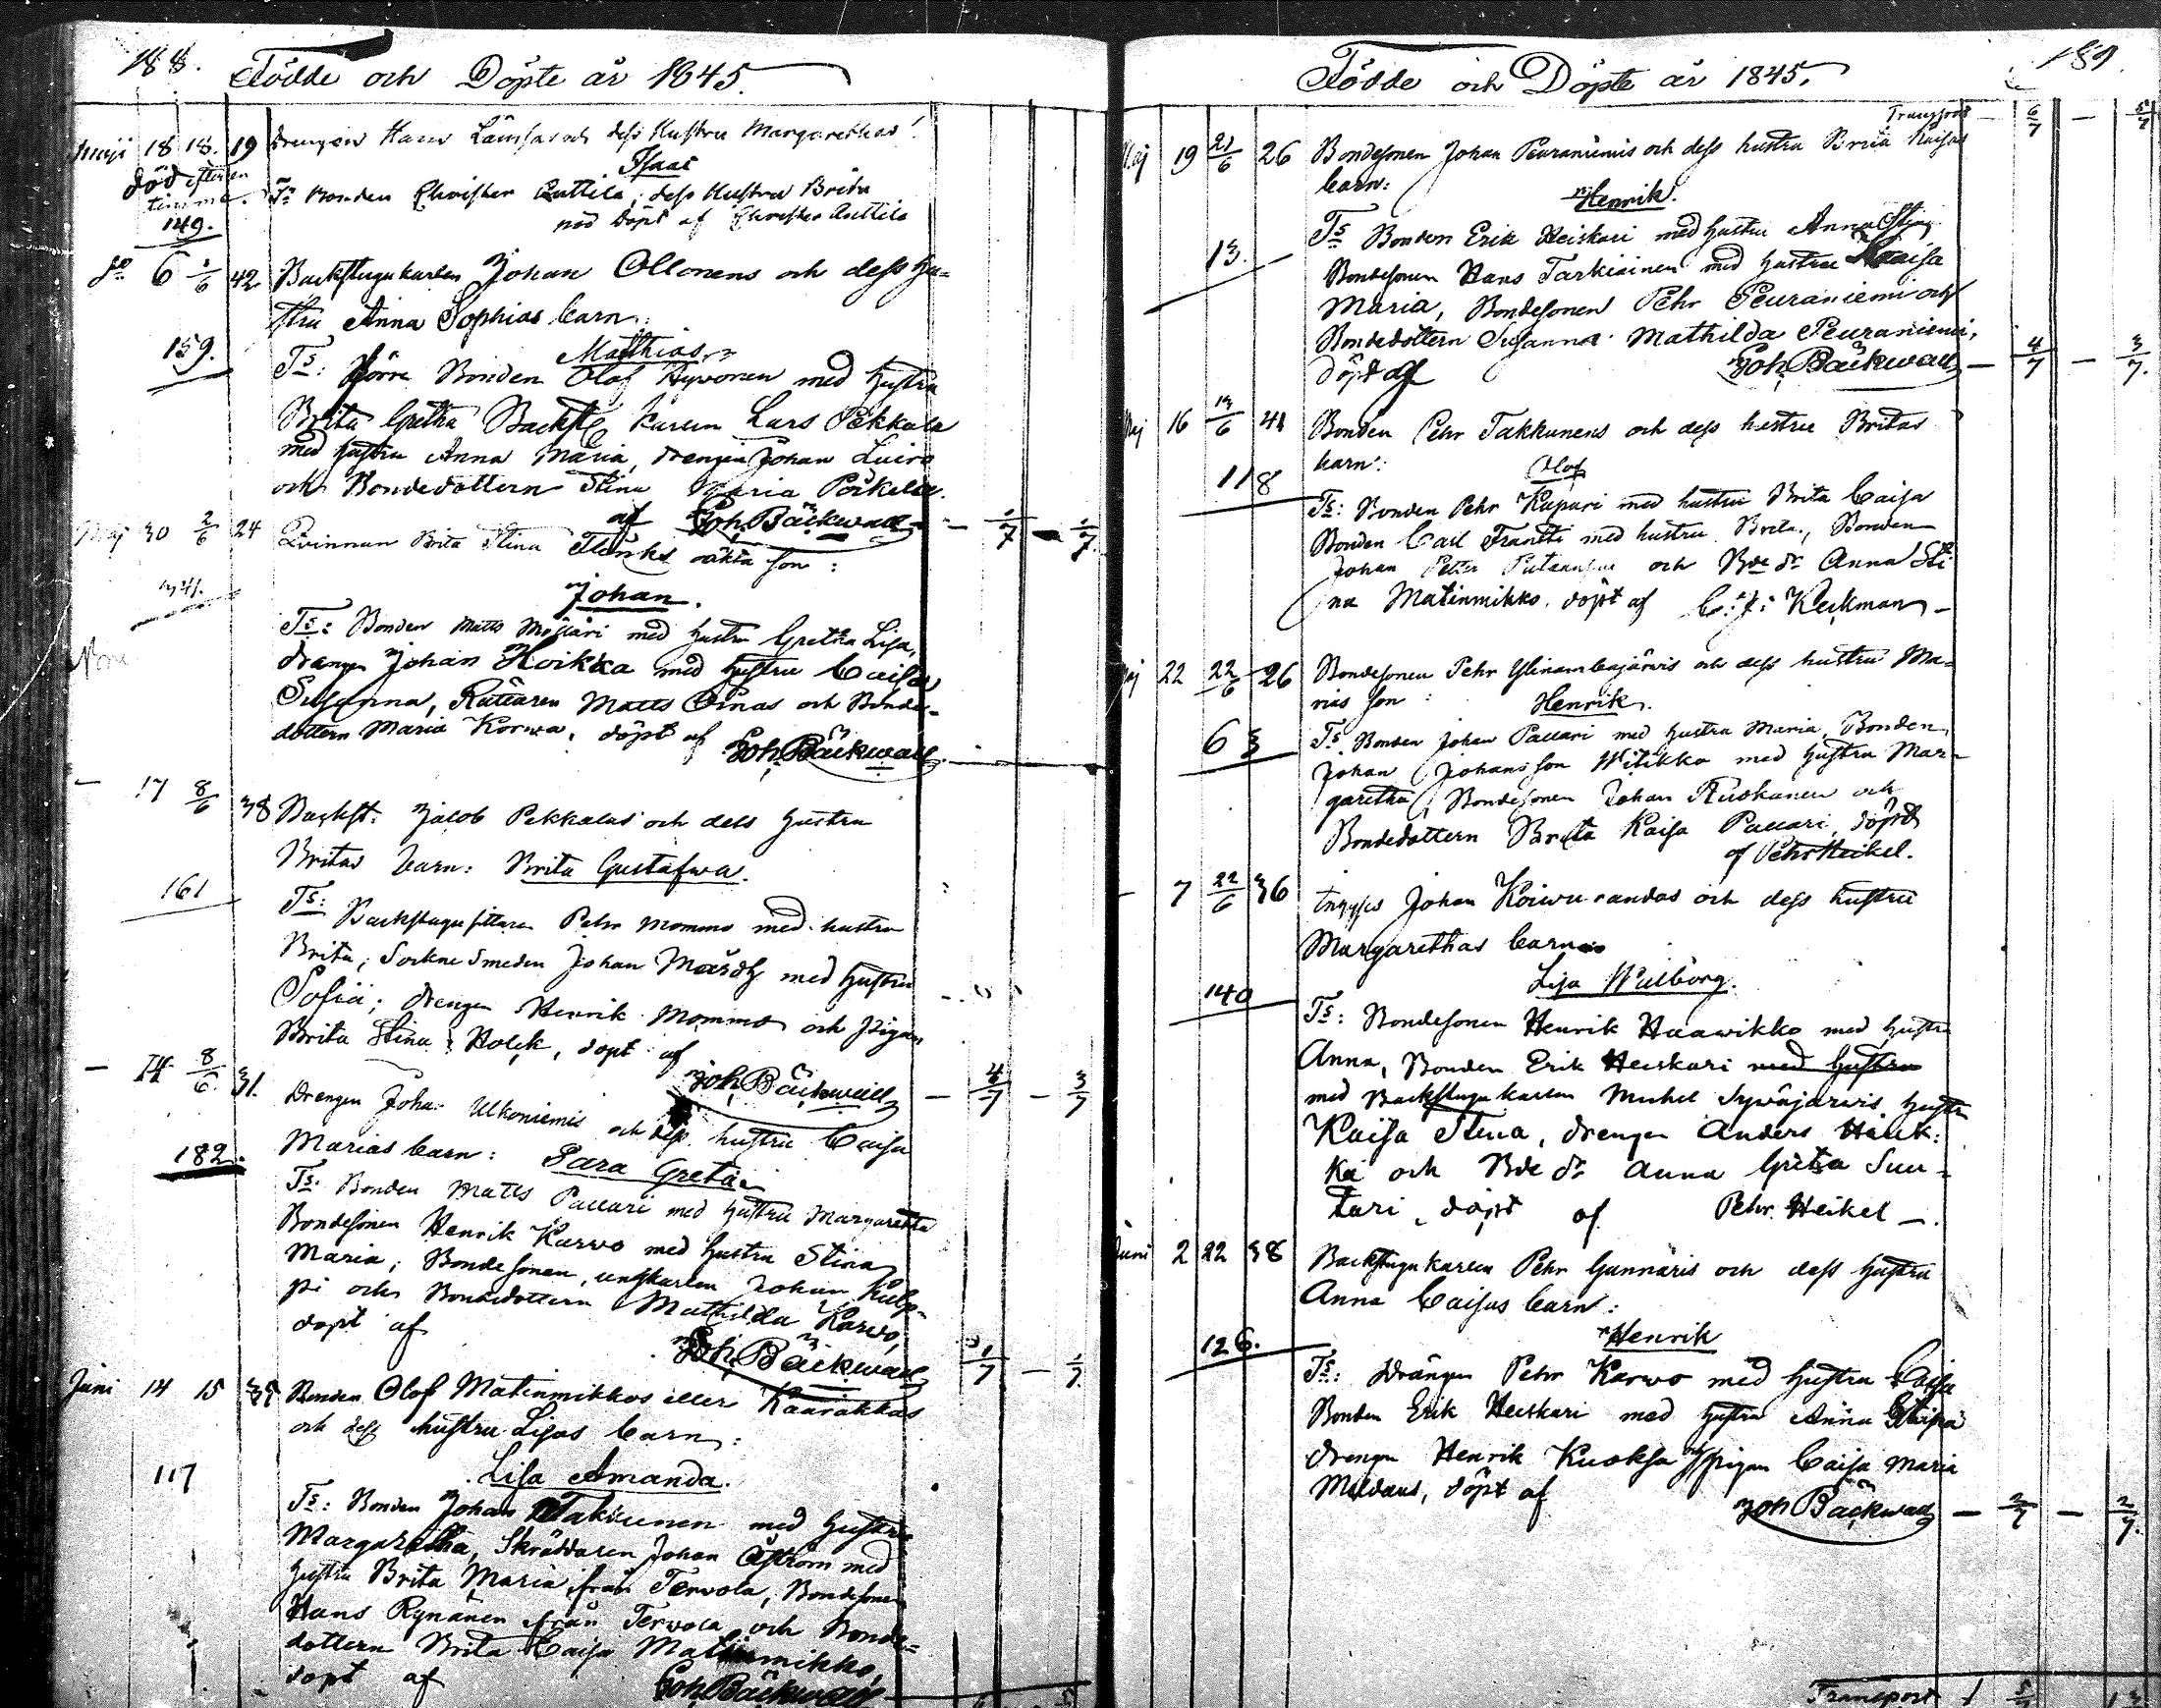 188.
Födde och Döpte år 1845.
Maji 18 18. 19 Drengen Hans och dess Hustru Margarethas
död efter en timma. Isaac
Ts Bonden Christer Anttila, dess Hustru Brita
149. nöd döpt af Christer Anttila
do 6 1/6 42 Backstugukarlen Johan Ollonens och dess hu=
stru Anna Sophias barn:
159. Mathias
Ts: förre Bonden Olof Hyvonen med hustru
Brita Gretha Backst. karlen Lars Pekkala
med hustru Anna Maria, drengen Johan Luiro
och Bondedottern Stina Maria Poikela.
af Joh. Bäckwall – 1/7 – 1/7.
Maj 30 2/6 24 Qvinnan Brita Stina oäkta son:
Johan.
Ts: Bonden Matts med hustru Gretha Lisa,
drengen Johan Hoikka med hustru Caisa
Susanna, Rättaren Matts Oinas och Bonde-
dottern Maria Korva, döpt af Joh. Bäckwall
– 17 8/6 38 Backst: Jacob Pekkalas och dess hustru
Britas barn: Brita Gustafwa.
161 Ts:
Backstugusittaren Pehr Mommo med hustru
Brita, Sockne Smeden Johan med hustru
Sofia; drengen Henrik Mommo och pigan
Brita Stina Holck, döpt af
Joh. Bäckwall – 4/7 – 3/7
– 14 8/6 31. Drengen Joha: Ulkoniemis och dess hustru Caisa
Marias barn: Sara Greta
182. Ts. Bonden Matts Paccari med hustru Margaretha
Bondesonen Henrik Karvo med hustru Stina
Maria; Bondesonen, ungkarlen Johan Kulp-
pi och Bondedottern Mathilda Karvo,
döpt af
Joh. Bäckwall 1/7 – 1/7
Juni 14 15 39 Bonden Olof Matinmikkos eller Kaarakkas
och dess hustru Lisas barn:
117 Lisa Amanda.
Ts: Bonden Johan Takkunen med hustru
Margaretha, Skräddaren Johan Åström med
hustru Brita Maria från Tervola, Bondesonen
Hans Rynänen från Tervola och Bonde=
dottern Brita Caisa Matinmikko,
döpt af Joh. Bäckwall
189
Födde och Döpte år 1845.
Transport – 6/7 – 5/7
Maj 19 21/6 26 Bondesonen Johan Peuraniemis och dess hustru Brita Kaisas
barn:
Henrik.
13. Ts Bonden Erik Heiskari med hustru Anna Stina
Bondesonen Hans Tarkiainen med hustru Kaisa
Maria, Bondesonen Pehr Peuraniemi och
Bondedottern Susanna Mathilda Peuraniemi,
döpt af Joh. Bäckwall – 4/7 – 3/7.
Maj 16 19/6 41 Bonden Pehr Takkunens och dess hustru Britas
barn:
118 Olof
Ts: Bonden Pehr Kupari med hustru Brita Caisa
Bonden Carl Frantti med hustru Brita, Bonden
Johan Petter och Bde dr Anna Sti
na Matinmikko. döpt af C: J: Keckman –
Maj 22 22/6 26 Bondesonen Pehr Ylinambajärvis och dess hustru Ma=
rias son: Henrik.
63 Ts. Bonden Johan Paccari med hustru Maria, Bonden
Johan Johansson Witikko med hustru Mar=
garetha, Bondesonen Johan Ruokanen och
Bondedottern Brita Kaisa Paccari, döpt
af Pehr Heikel.
– 7 22/6 36 Johan Koivurandas och dess hustru
Margarethas barn
140 Lisa Wilborg.
Ts: Bondesonen Henrik Haawikko med hustru
Anna, Bonden Erik Heiskari med hustru
med Backstugukarlen Michel Syväjärvis hustru
Kaisa Stina, drengen Anders Hauk:
ka och Bde dr Anna Greta Suu=
tari, döpt af Pehr Heikel –.
Juni 2 22 38 Backstugukarlen Pehr Gunnäris och dess hustru
Anna Caisas barn:
126. Henrik
Ts: Drängen Pehr Karvo med hustru Caisa
Bonden Erik Heiskari med hustru Anna
drengen Henrik Kuoksa och pigan Caisa Maria
döpt af
Joh Bäckwall – 2/7 – 2/7.
Transport